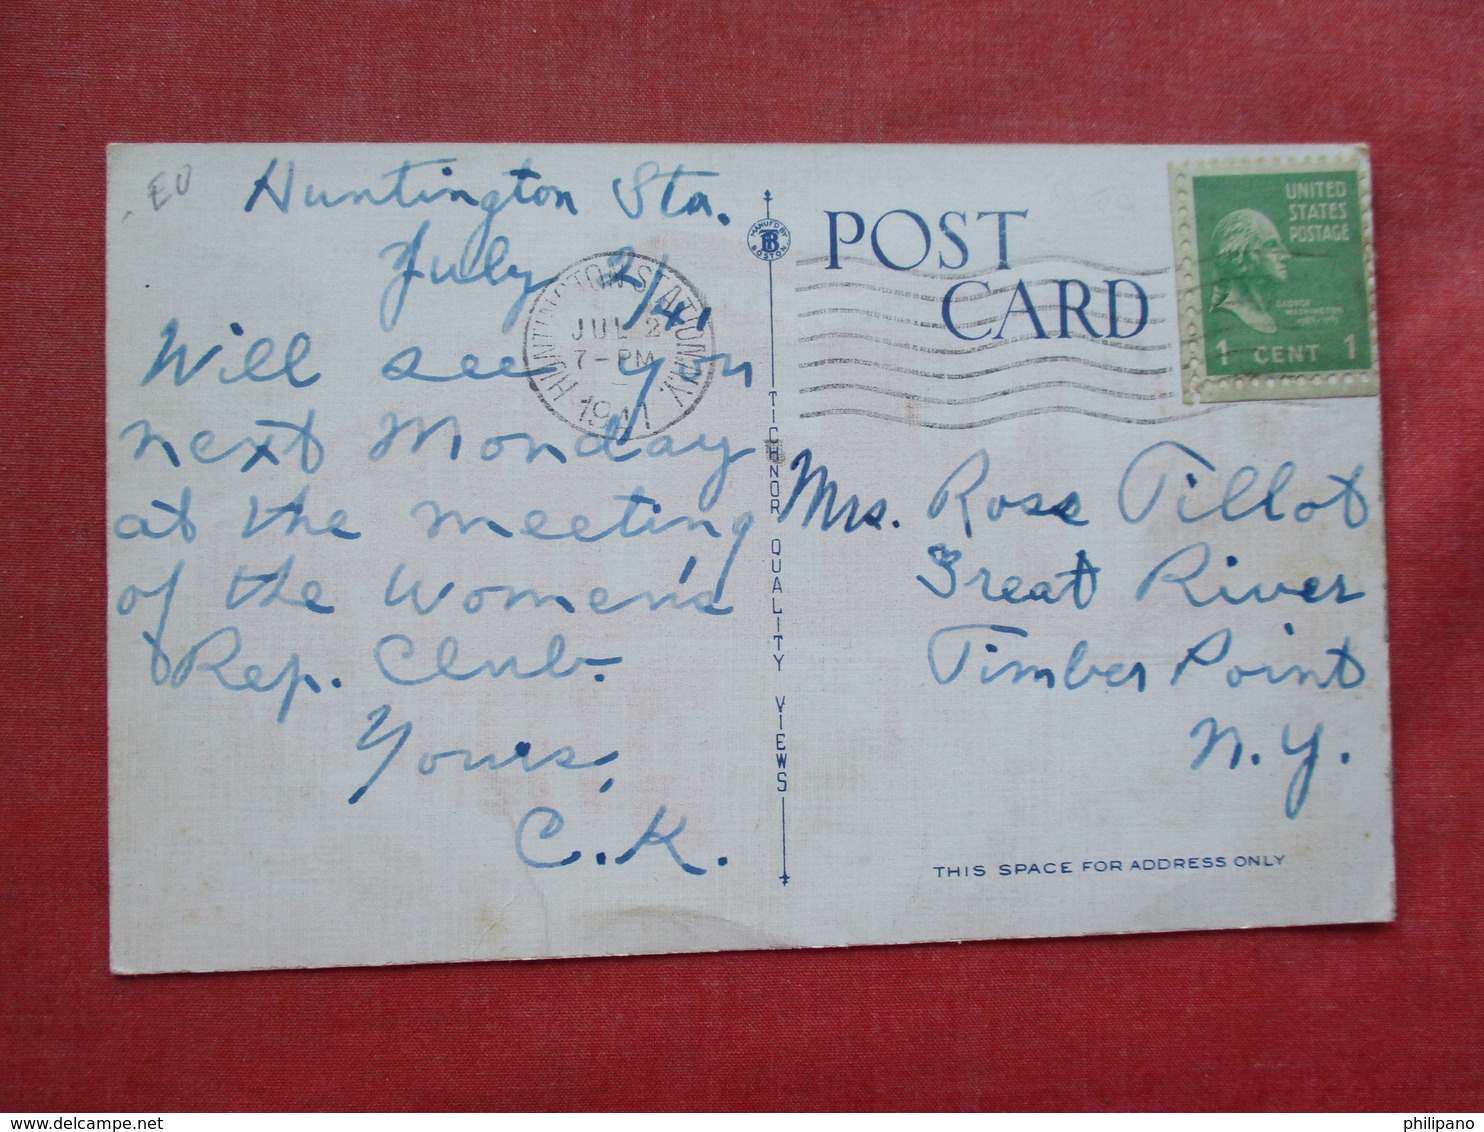 EU
Huntington Sta.
July 2/41
Will see you
next Monday
at the meeting
of the Women's
Rep. Club.
Yours,
C.K.
HUNTINGTON STATION, N.Y.
JUL 2
7-PM
1941
MANUF'D BY
TB
BOSTON
TICHNOR QUALITY VIEWS
POST
CARD
UNITED
STATES
POSTAGE
GEORGE
WASHINGTON
1 CENT 1
Mrs. Rose Tillot
Great River
Timber Point
N.Y.
THIS SPACE FOR ADDRESS ONLY
www.delcampe.net
philipano